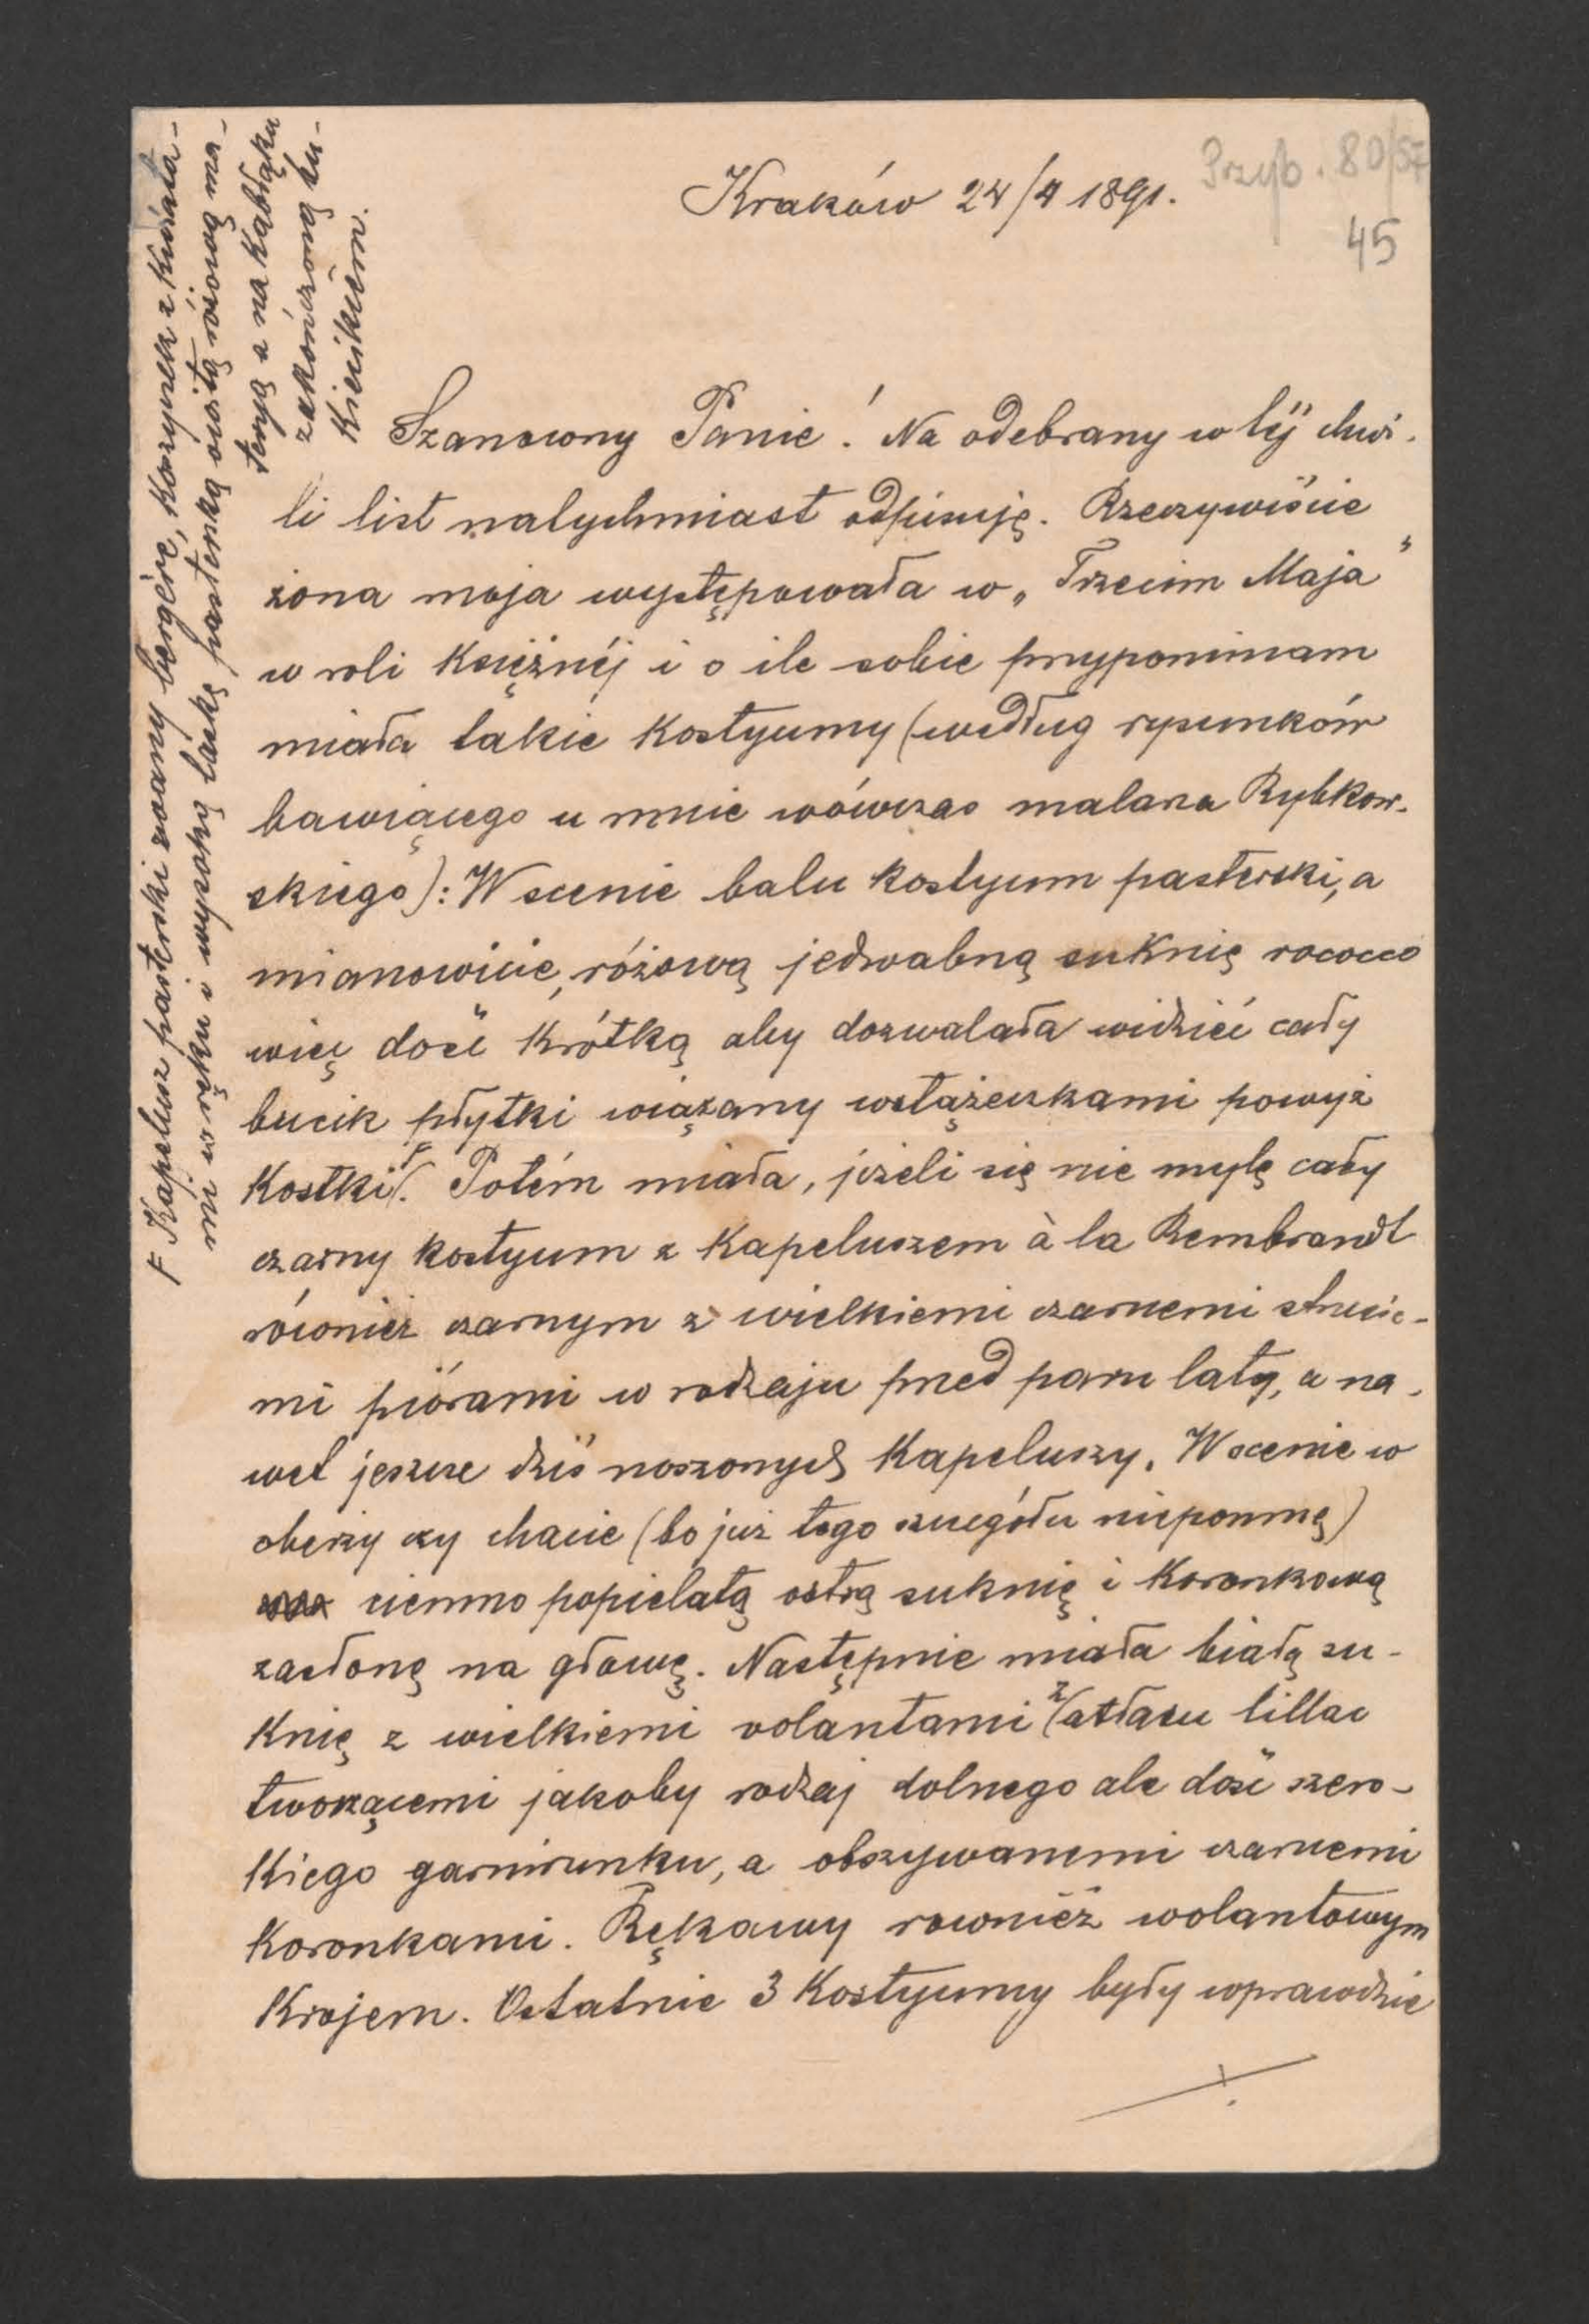 Przyb. 80/57
45
Kraków 24/4 1891.
Szanowny Panie! Na odebrany w téj chwi-
li list natychmiast odpisuję. Rzeczywiście
żona moja występowała w „Trzecim Maja”
w roli Księżnéj i o ile sobie przypominam
miała takie kostyumy (według rysunków
bawiącego u mnie wówczas malarza Rybkow-
skiego): W scenie balu kostyum pasterski, a
mianowicie, różową jedwabną suknię rococco
więc dość krótką aby dozwalała widzieć cały
bucik płytki wiązany wstążeczkami powyż
kostki F. Potém miała, jeżeli się nie mylę cały
czarny kostyum z kapeluszem à la Rembrandt
również czarnym z wielkiemi czarnemi strusie-
mi piórami w rodzaju przed paru laty, a na-
wet jeszcze dziś noszonych kapeluszy. W scenie w
oberzy czy chacie (bo już tego szczegółu niepomnę)
ciemno popielatą ostrą suknię i koronkową
zasłonę na głowę. Następnie miała białą su-
knię z wielkiemi volantami z atłasu lillac
tworzącemi jakoby rodzaj dolnego ale dość szero-
kiego garnirunku, a obszywanemi czarnemi
koronkami. Rękawy rownież wolantowym
krojem. Ostatnie 3 kostyumy były wprawdzie
F Kapelusz pasterski zwany bergère, koszyczek z kwiata-
mi w ręku i wysoką laskę pasterską owitą różową ma-
teryą a na kabłąku
zakończoną ku-
kiecikiem.